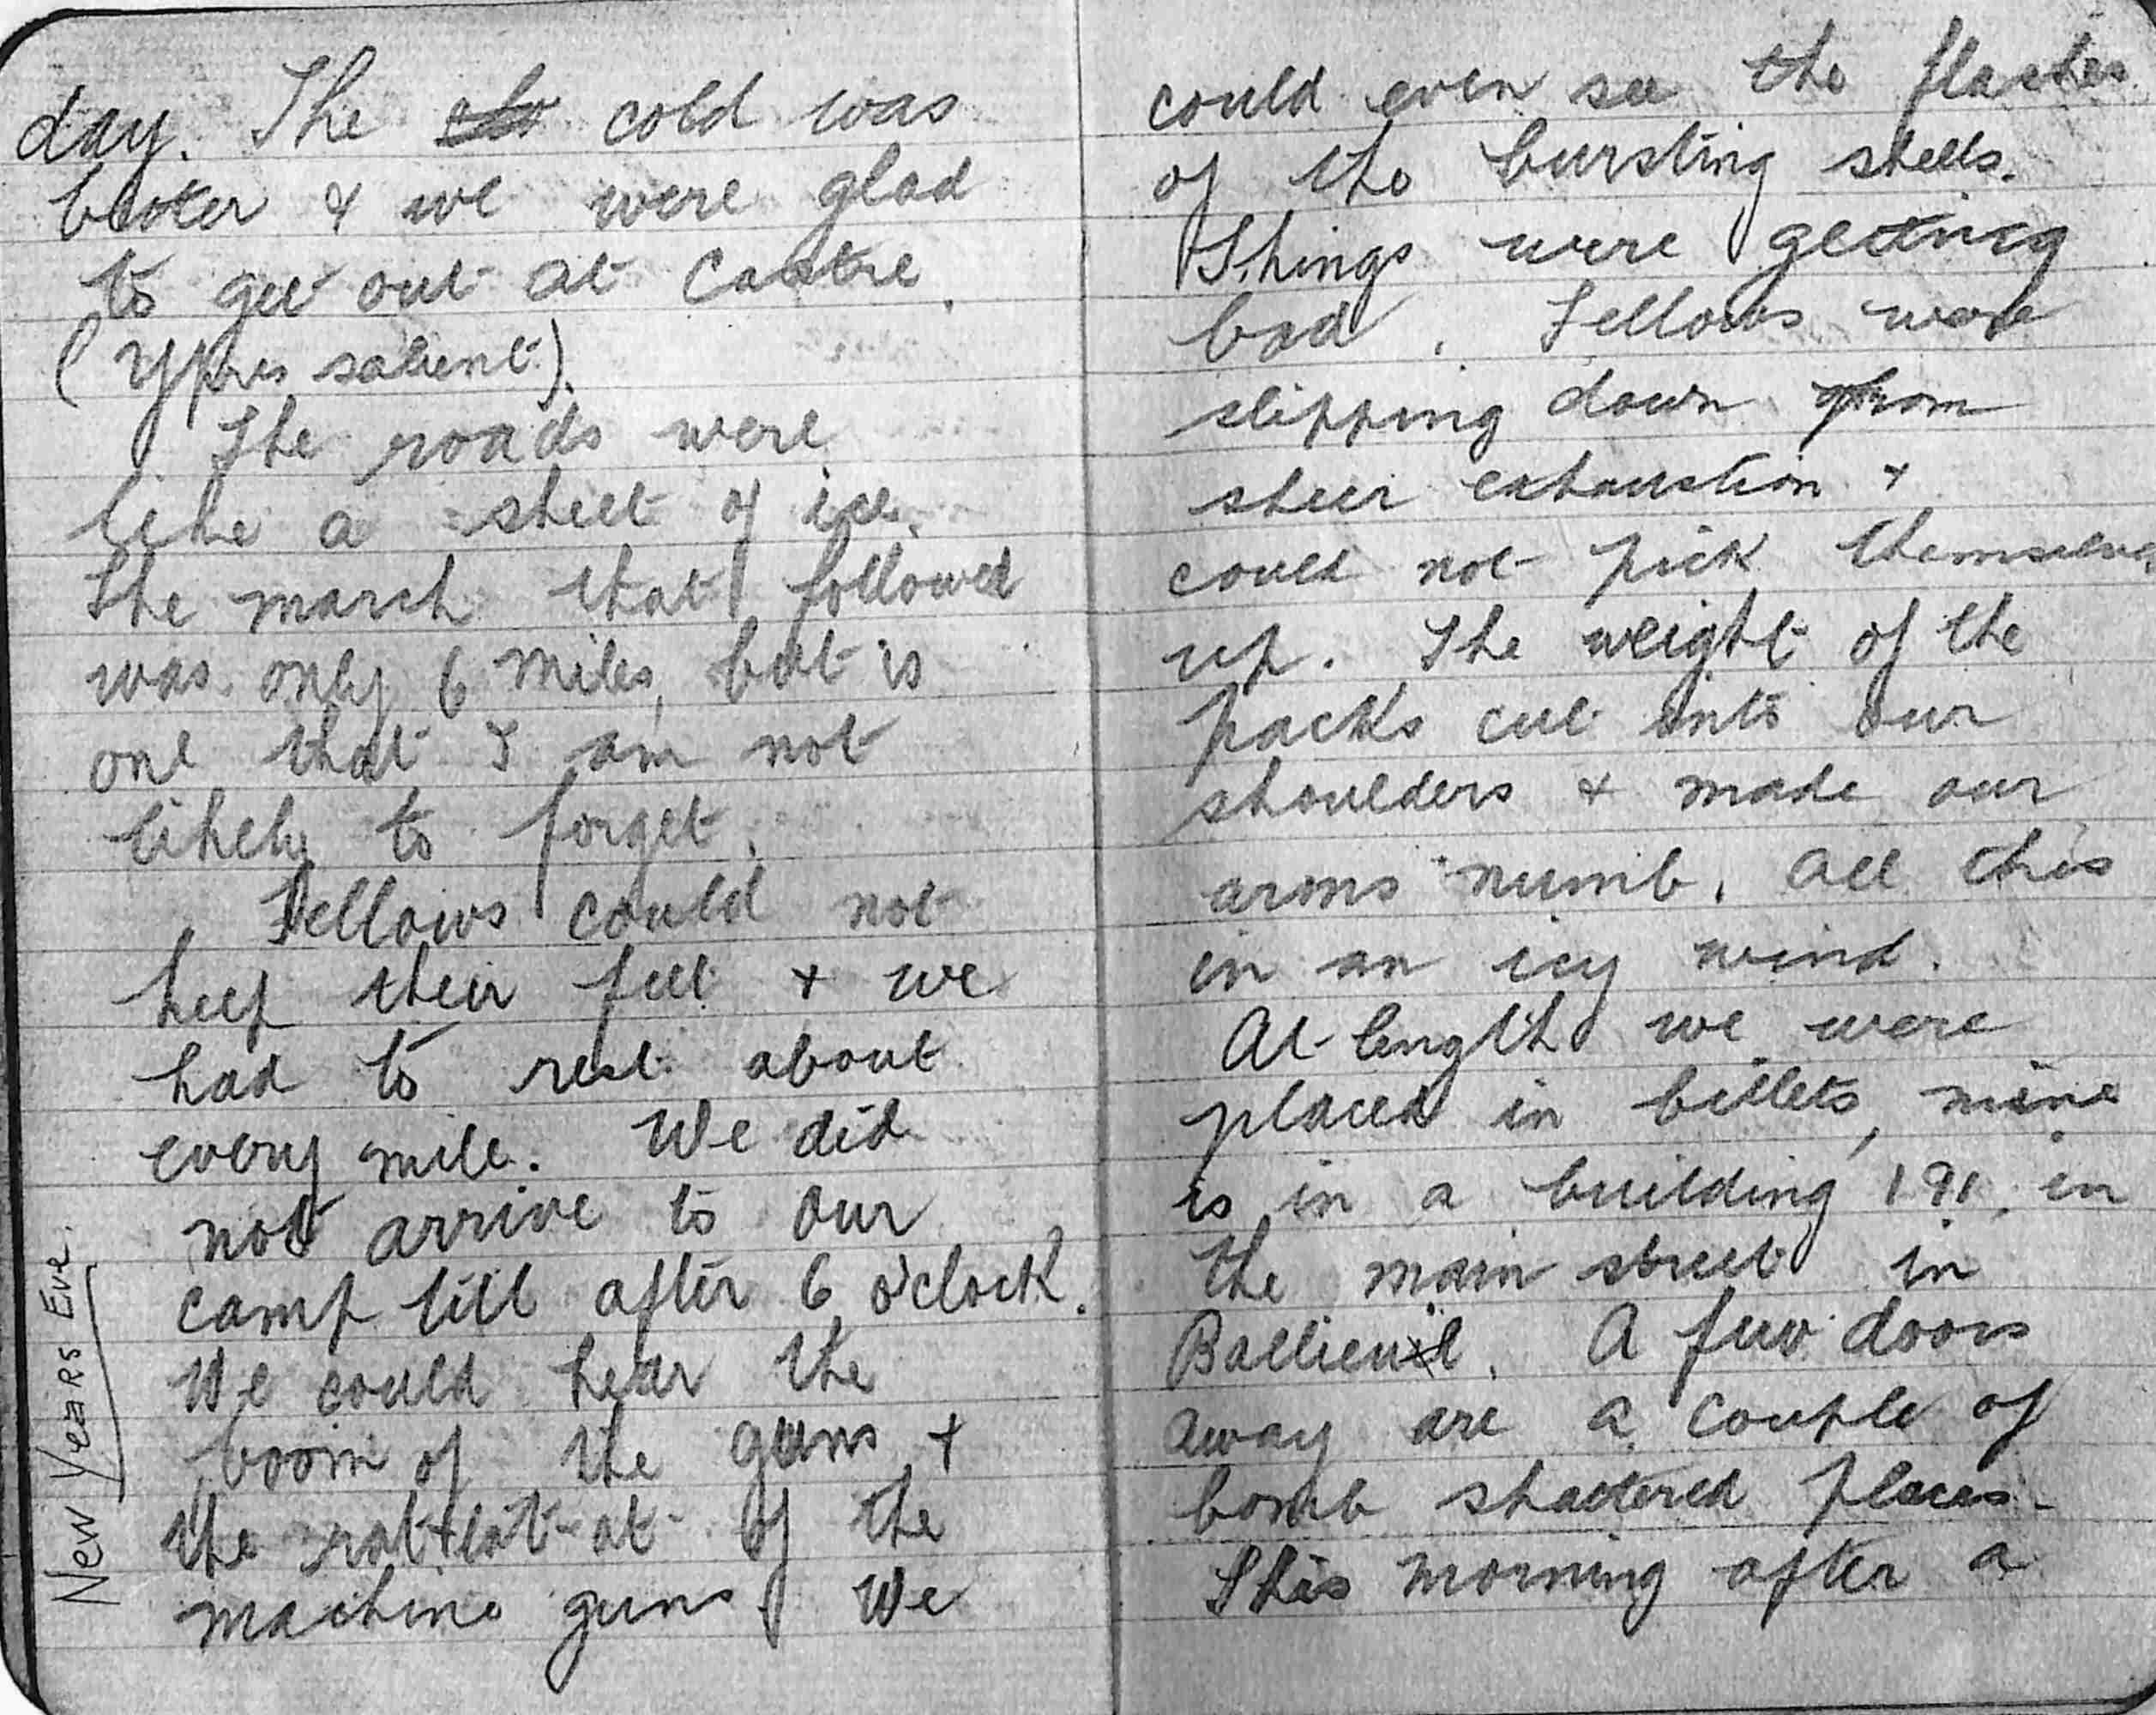 day. The cold was
bitter & we were glad
to get out at Castre.
(Ypres salient).
The roads were
like a sheet of ice.
The march that followed
was only 6 miles, but is
one that I am not
likely to forget.
Fellows could not
keep their feet + we
had to rest about
every mile. We did
not arrive to our
camp till after 6 o'clock.
We could hear the
boom of the guns +
the rat-tat-at of the
machine guns. We
New Years Eve.
could even see the flashes
of the bursting shells.
Things were getting
bad. Fellows were
slipping down from
sheer exhaustion +
could not pick themselves
up. The weight of the
packs cut into our
shoulders + made our
arms numb. All this
in an icy wind.
At length we were
placed in billets, mine
is in a building 191, in
the main street in
Ballieul. A few doors
away are a couple of
bomb shattered places.
This morning after a